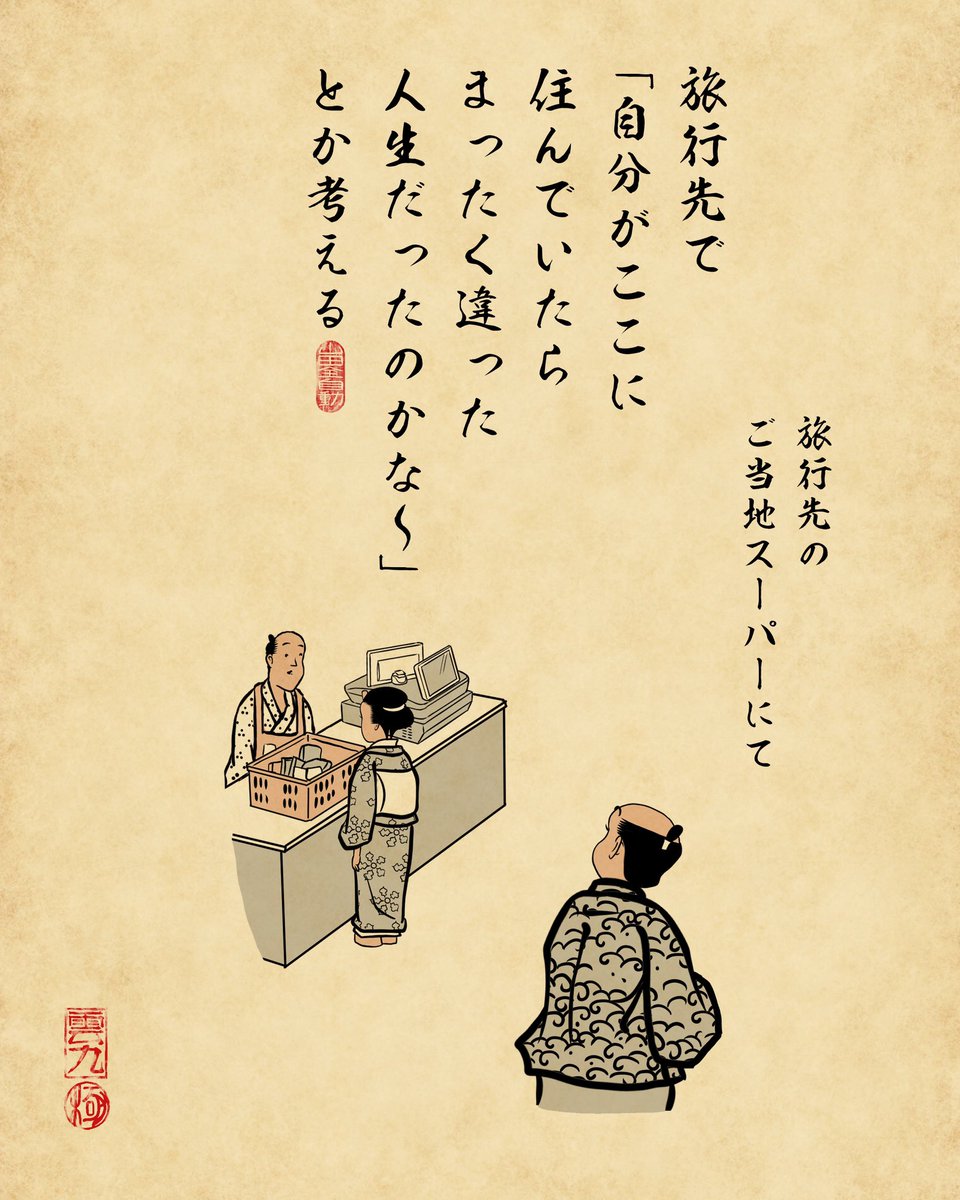 旅行先で
「自分がここに
住んでいたら
まったく違った
人生だったのかな〜」
とか考える
旅行先の
ご当地スーパーにて